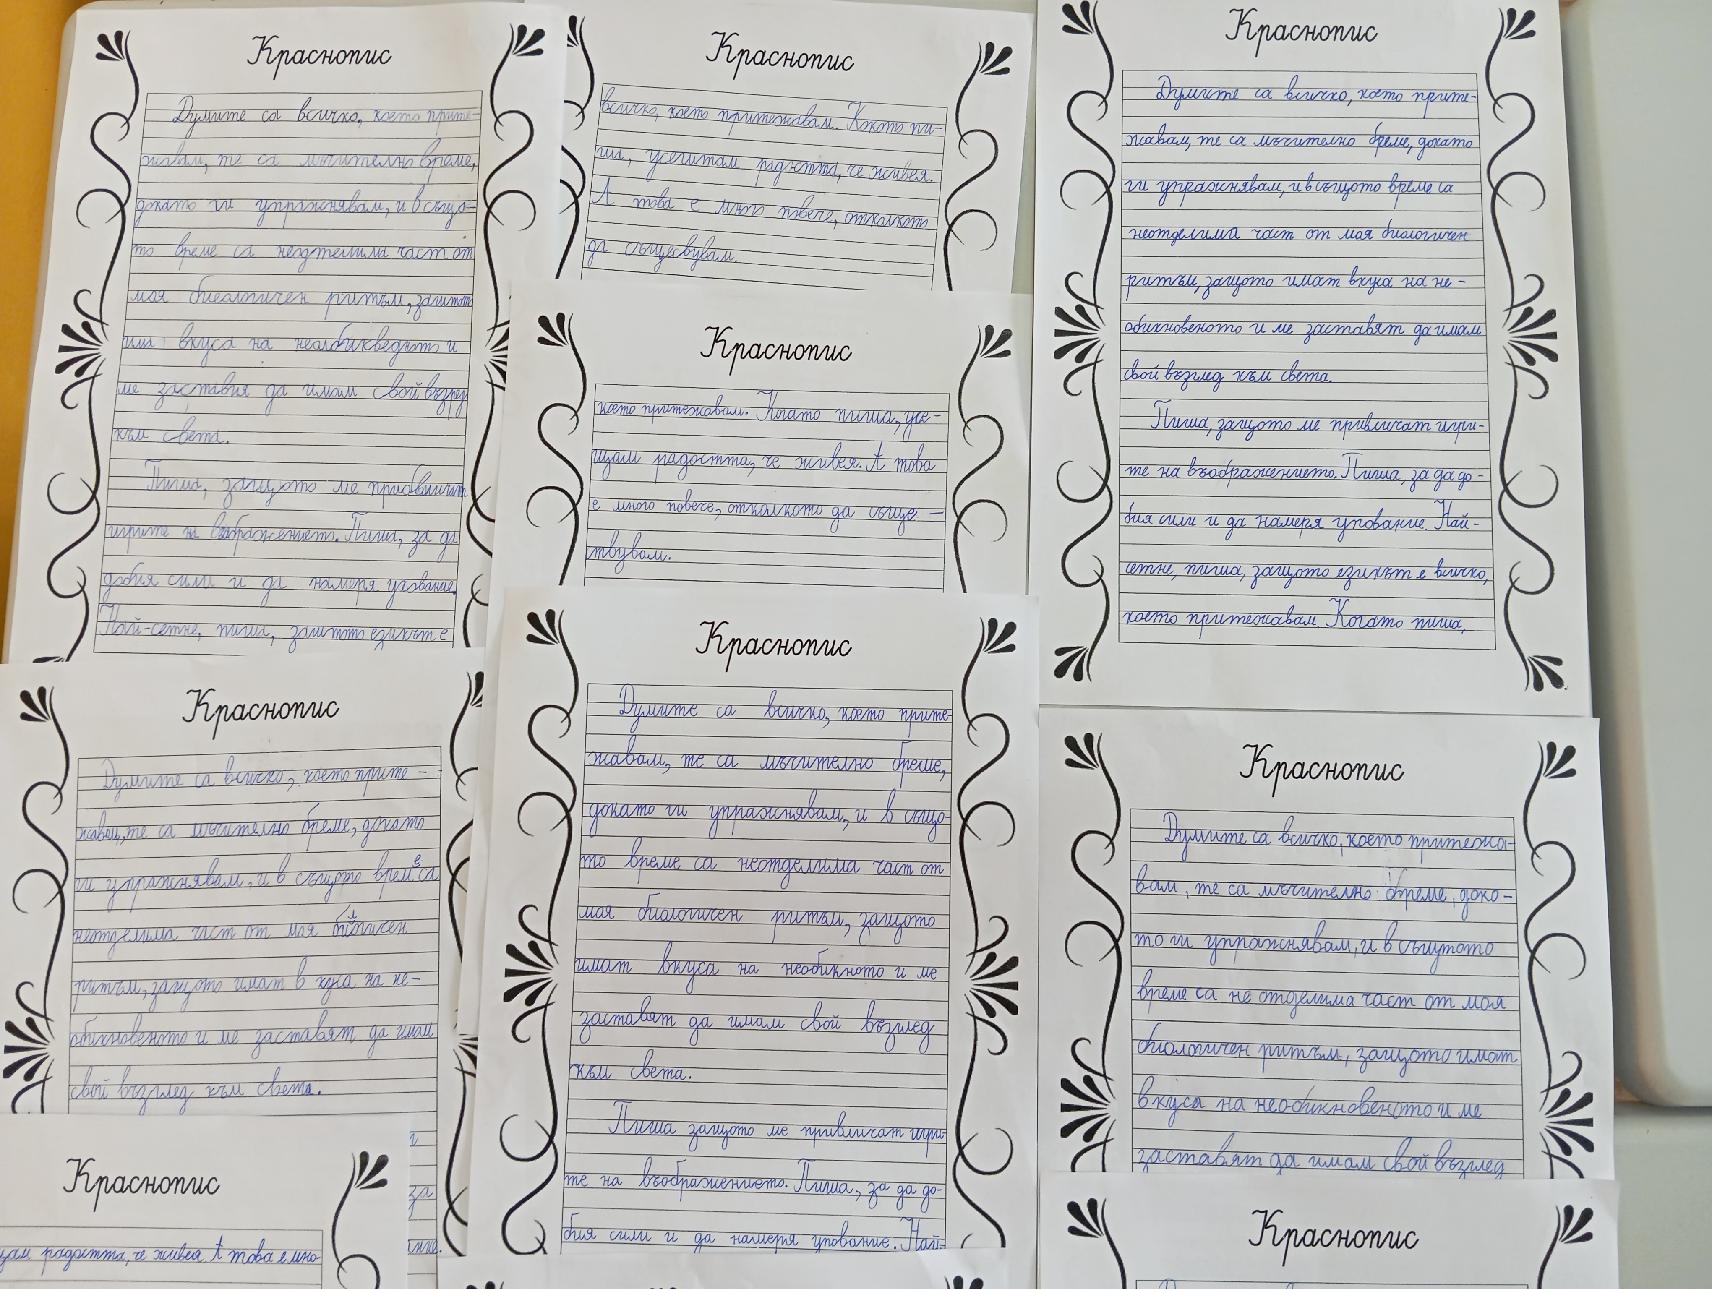 Краснопис
Думите са всичко, което прите-
жавам, те са мъчително време,
докато ги упражнявам, и в също-
то време са неотделима част от
моя биеологичен ритъм, защото
има вкуса на
ме заставия да имам свой възглед
към света.
Пиша, защото ме
игрите на въображението. Пиша, за да
добия сили и да намеря упование.
Най-сетне, пиша, защото езикът е
Краснопис
всичко, което притежавам. Когато пи-
ша, усещам радостта, че живея.
А това е много повече, отколкото
да съществувам.
Краснопис
което притежавам. Когато пиша, усе-
щам радостта, че живея. А това
е много повече, отколкото да съще-
твувам.
Краснопис
Думите са всичко, което прите-
жавам, те са мъчително бреме, докато
ги упражнявам, и в същото време са
неотделима част от моя биологичен
ритъм, защото имат вкуса на не-
обикновеното и ме заставят да имам
свой възглед към света.
Пиша, защото ме привличат игри-
те на въображението. Пиша, за да до-
бия сили и да намеря упование. Най-
сетне, пиша, защото езикът е всичко,
което притежавам. Когато пиша,
Краснопис
Думите са всичко, което прите-
те са мъчително бреме, докато
ги упражнявам, и в същото време са
неотделима част от моя
ритъм, защото имат в куса на не-
обикновеното и ме заставят да имам
свой възглед към света.
Краснопис
Думите са всичко, което прите-
жавам, те са мъчително бреме,
докато ги упражнявам, и в също-
то време са неотделима част от
моя биологичен ритъм, защото
имат вкуса на необикното и ме
заставят да имам свой възглед
към света.
Пиша защото ме привличат игри-
те на въображението. Пиша, за да до-
бия сили и да намеря упование. Най-
Краснопис
Думите са всичко, което притежа-
вам, те са мъчително бреме, дока-
то ги упражнявам, и в същтото
време са не отделима част от моя
биологичен ритъм, защото имат
вкуса на необикновеното и ме
заставят да имам свой възглед
Краснопис
щам радостта, че живея. А това е мно
Краснопис